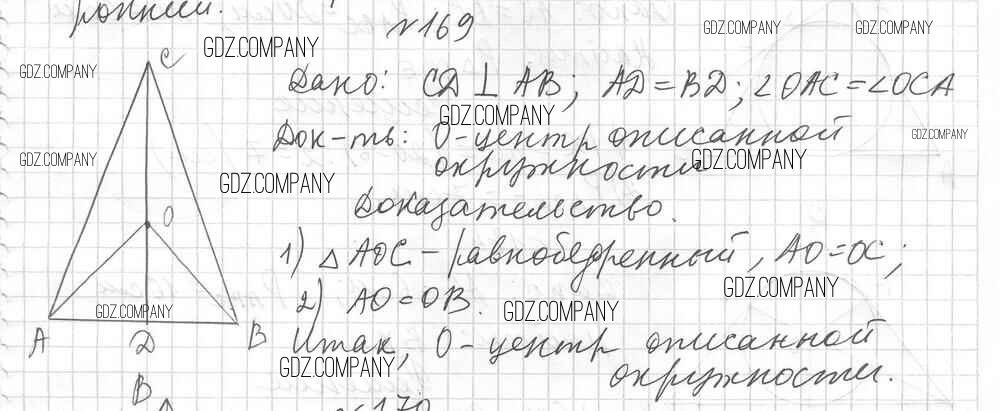 №169
GDZ.COMPANY
GDZ.COMPANY
GDZ.COMPANY
GDZ.COMPANY
C
Дано: CD ⊥ AB; AD = BD; ∠OAC = ∠OCA
GDZ.COMPANY
Док-ть: O-центр описанной
GDZ.COMPANY
GDZ.COMPANY
окружности
GDZ.COMPANY
GDZ.COMPANY
Доказательство.
O
1) △AOC – равнобедренный, AO=OC;
GDZ.COMPANY
2) AO = OB.
GDZ.COMPANY
GDZ.COMPANY
A
D
B
Итак, O – центр описанной
GDZ.COMPANY
окружности.
B
№170